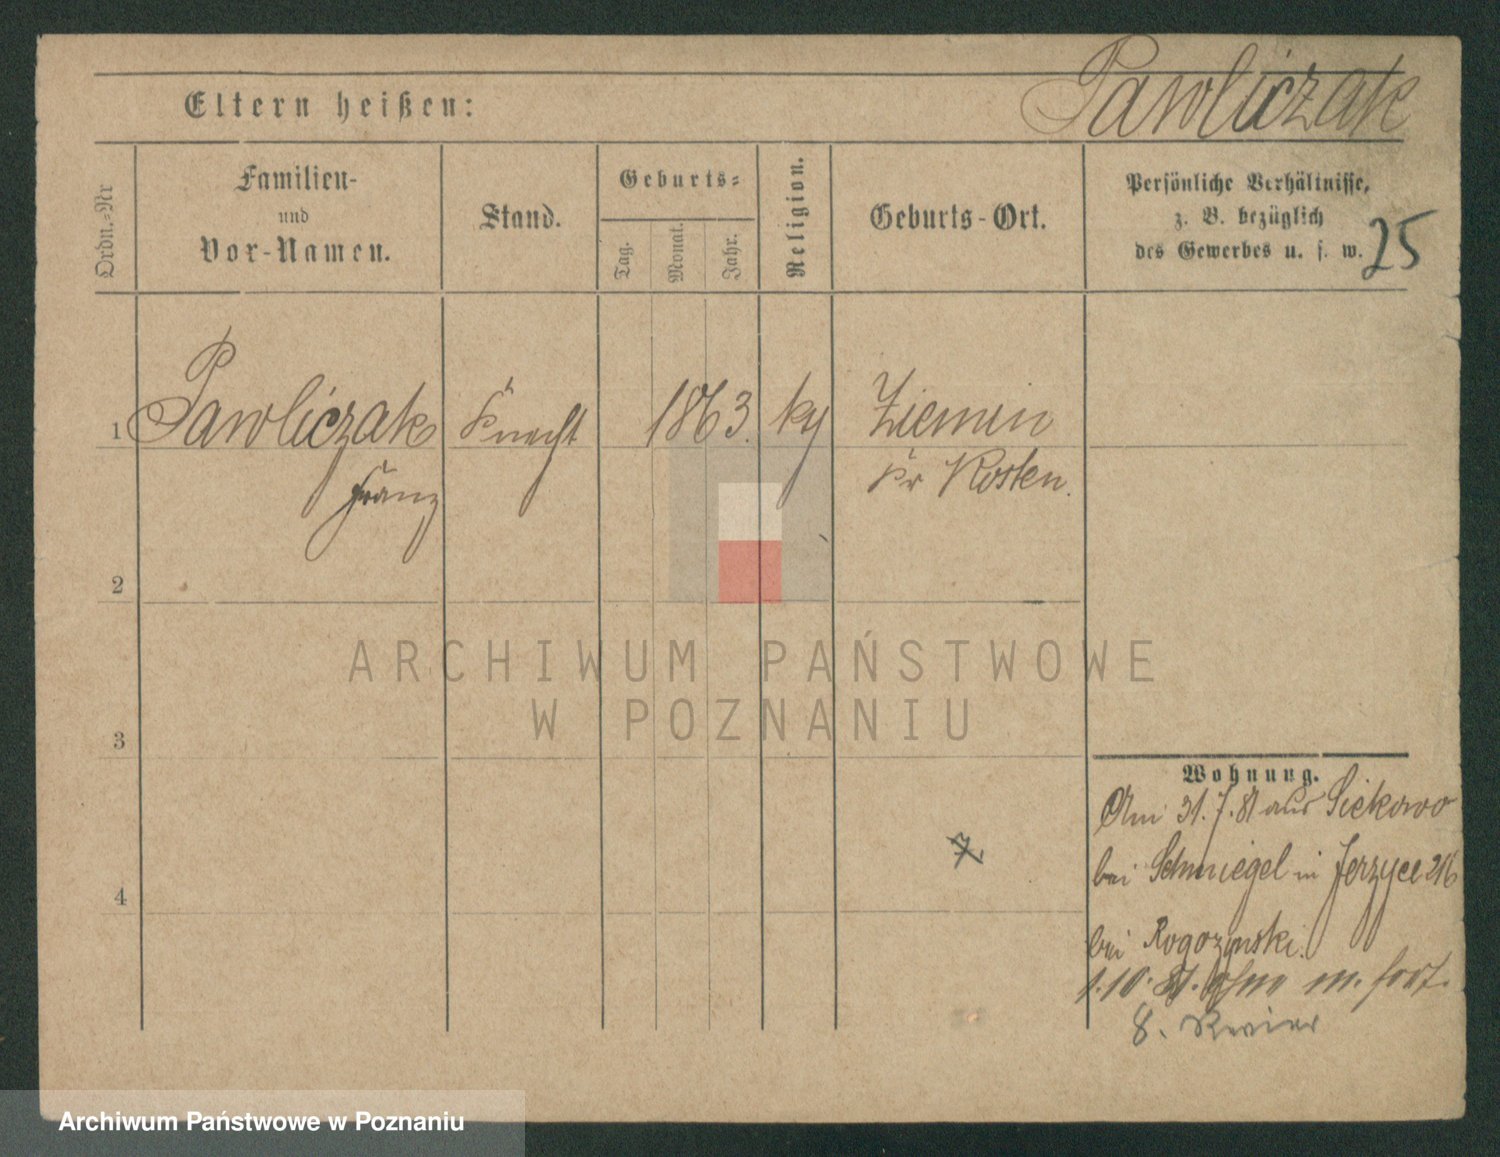 Pawliczak
Eltern heißen:
Ordn.=Nr
Familien-
und
Vor-Namen.
Stand.
Geburts=
Tag.
Monat.
Jahr.
Religion.
Geburts-Ort.
Persönliche Verhältnisse,
z. B. bezüglich
des Gewerbes u. s. w.
25
1 Pawliczak Knecht 1863. kg Ziemin
Franz Kr Kosten.
2
3
4
Wohnung.
Am 31.7.81 aus Siekowo
bei Schmiegel in Jerzyce 216
bei Rogozynski.
1.10.81. ohne m. fort.
8. Revier
7
ARCHIWUM PAŃSTWOWE
W POZNANIU
Archiwum Państwowe w Poznaniu